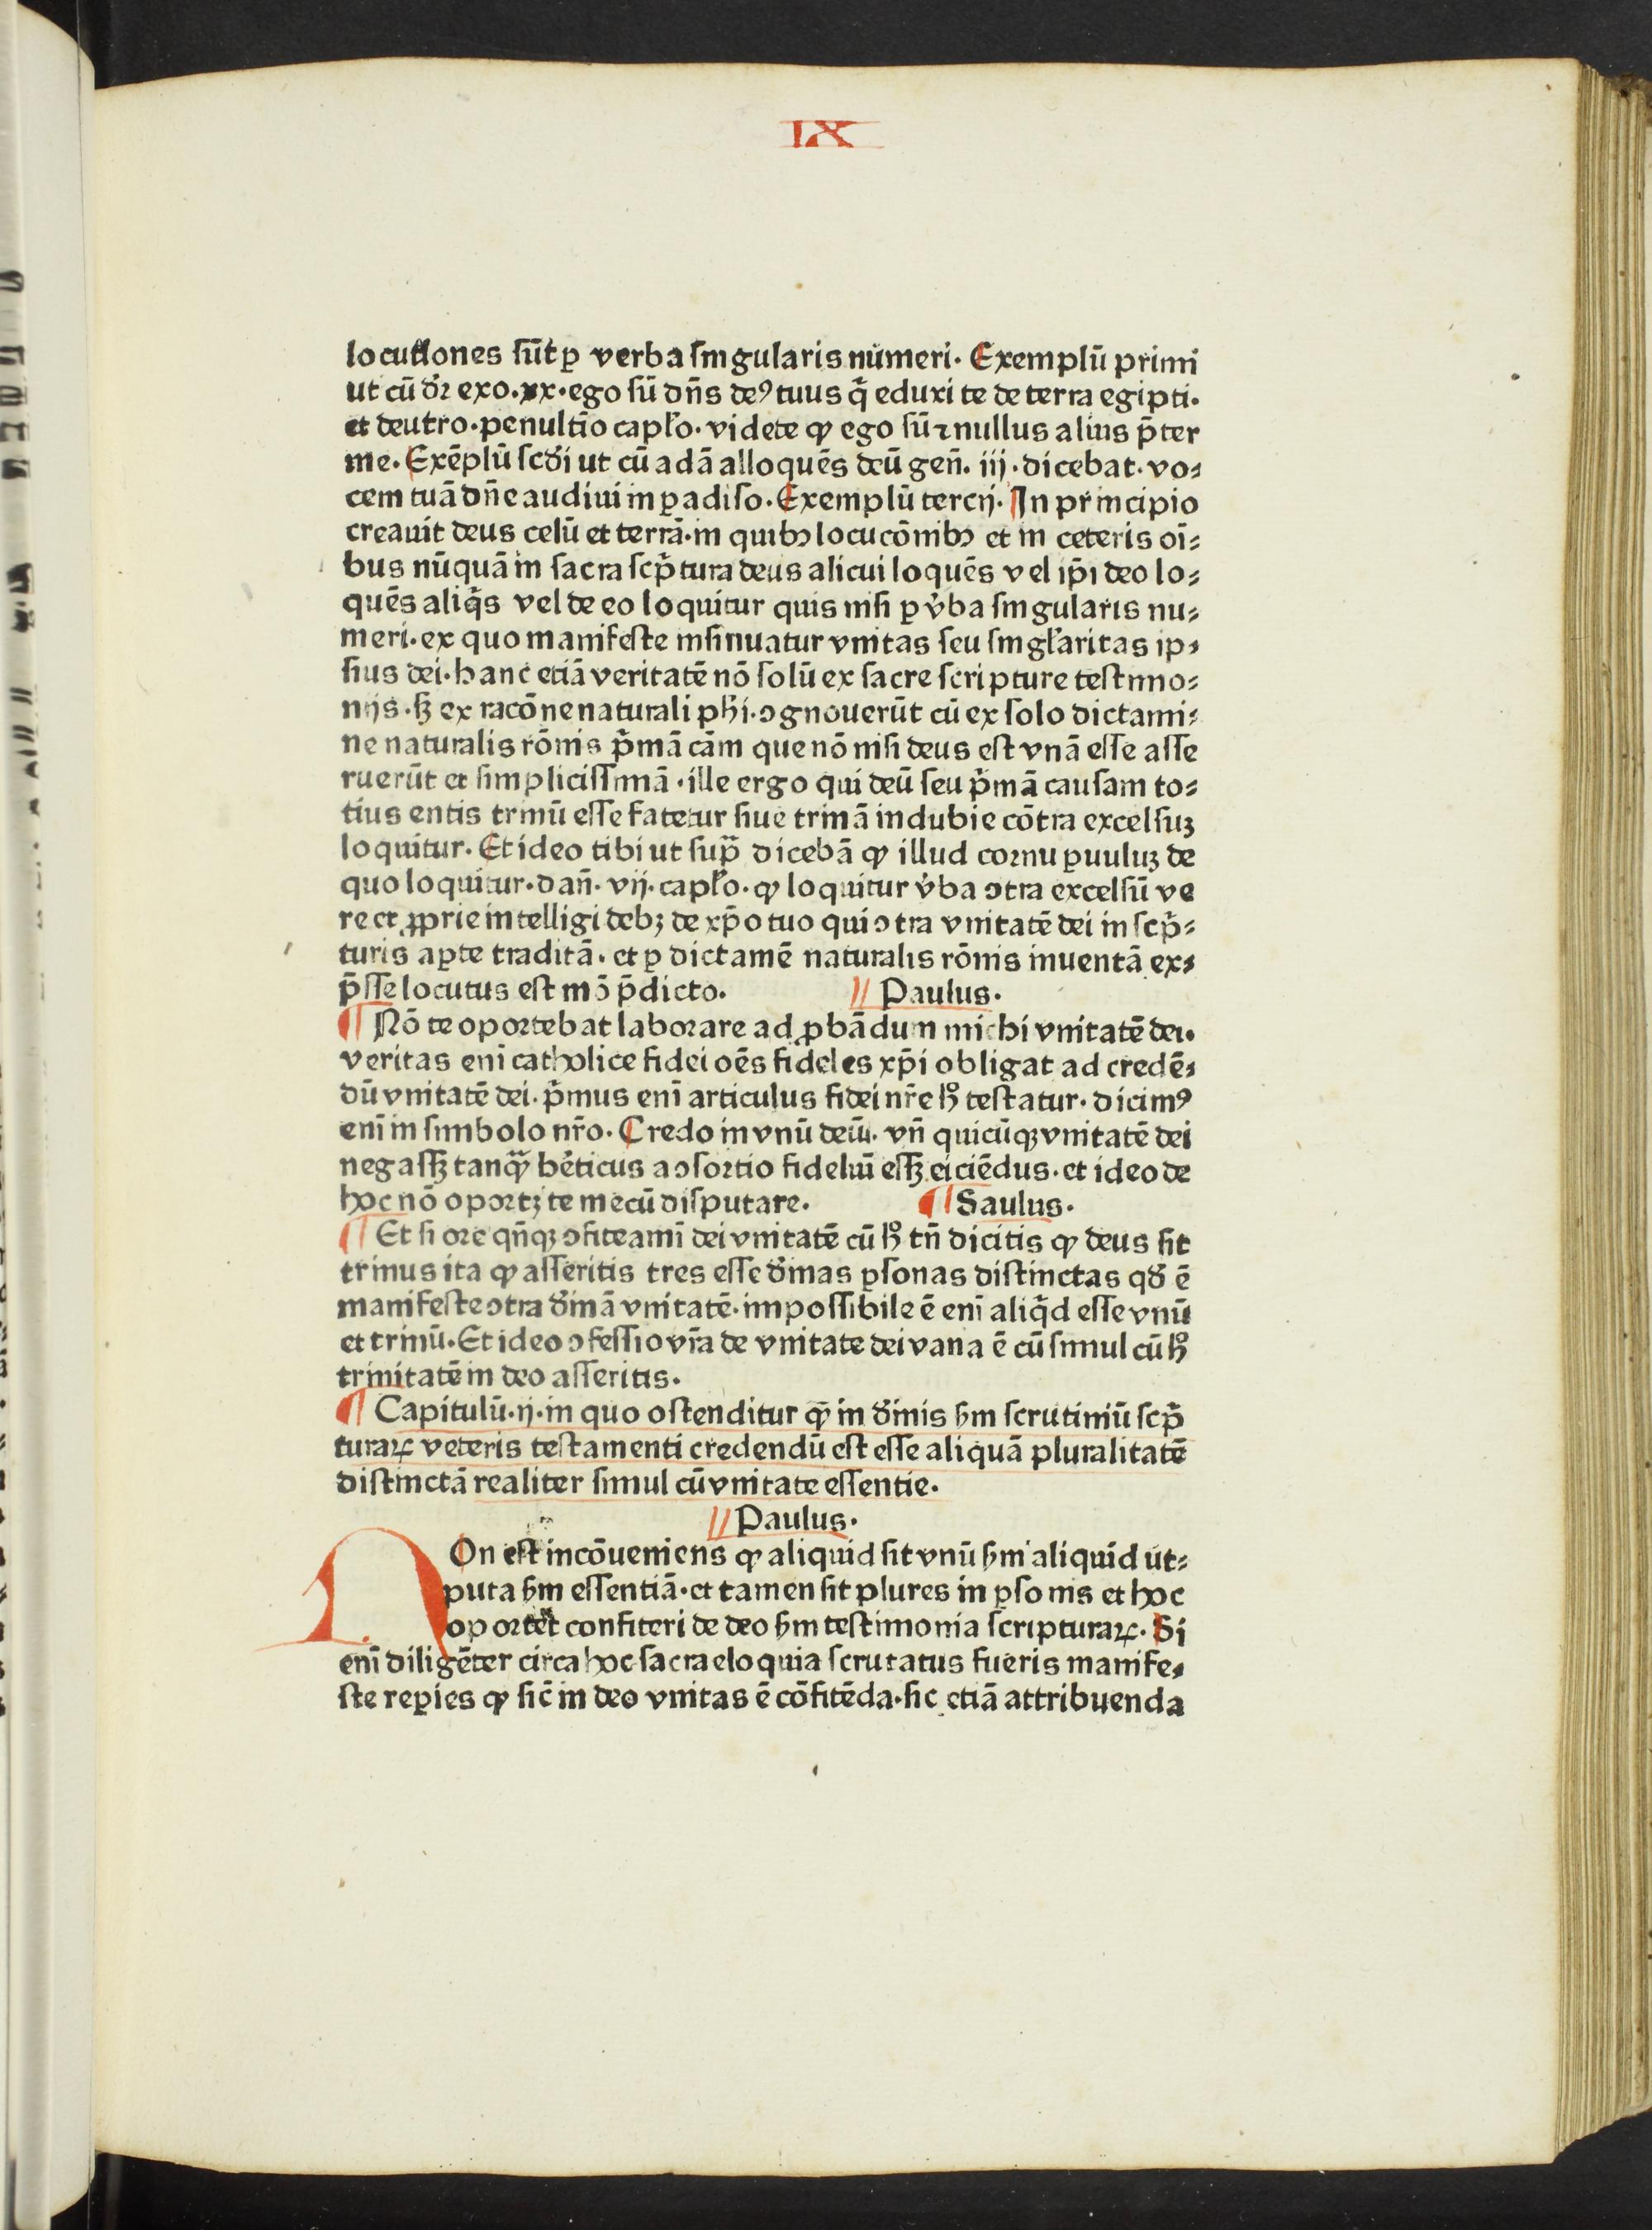 IX
locutiones ſūt ꝑ verba ſingularis numeri. Exemplū primi
ut cū dr̄ exo. xx. ego ſū dn̄s deꝰ tuus q̄ eduxi te de terra egipti.
et deutro. penultīo capło. videte ꝙ ego ſū ⁊ nullus alius p̄ter
me. Exēplū ſcd̄i ut cū adā alloquēs deū gen̄. iij. dicebat. vo⸗
cem tuā dn̄e audiui in ꝑadiſo. Exemplū tercij. In principio
creauit deus celū et terrā. in quibꝰ locucōnibꝰ et in ceteris oī⸗
bus nūquā in ſacra ſcp̄tura deus alicui loquēs vel ip̄i deo lo⸗
quēs aliq̄s vel de eo loquitur quis niſi ꝑ v̄ba ſingularis nu⸗
meri. ex quo manifeſte inſinuatur vnitas ſeu ſingłaritas ip⸗
ſius dei. hanc etiā veritatē nō ſolū ex ſacre ſcripture teſtimo⸗
nijs. ſꝫ ex racōne naturali pħi. ꝯgnouerūt cū ex ſolo dictami⸗
ne naturalis rōnis p̄mā cām que nō niſi deus eſt vnā eſſe aſſe
ruerūt et ſimpliciſſimā. ille ergo qui deū ſeu p̄mā cauſam to⸗
tius entis trinū eſſe fatetur ſiue trinā indubie cōtra excelſuꝫ
loquitur. Et ideo tibi ut ſup̄ dicebā ꝙ illud cornu ꝑuuluꝫ de
quo loquitur. dan̄. vij. capło. ꝙ loquitur v̄ba ꝯtra excelſū ve
re et ꝓprie intelligi debꝫ de xp̄o tuo qui ꝯtra vnitatē dei in ſcp̄⸗
turis aꝑte traditā. et ꝑ dictamē naturalis rōnis inuentā ex⸗
p̄ſſe locutus eſt mō p̄dicto. Paulus.
¶ Nō te oportebat laborare ad ꝓbādum michi vnitatē dei.
veritas enī catholice fidei oēs fideles xp̄i obligat ad credē⸗
dū vnitatē dei. p̄mus enī articulus fidei nr̄e h̊ teſtatur. dicimꝰ
enī in ſimbolo nr̄o. Credo in vnū deū. vn̄ quicūqꝫ vnitatē dei
negaſſꝫ tanqꝫ̄ hēticus a ꝯſortio fideliū eſſꝫ eiciēdus. et ideo de
hoc nō oportꝫ te mecū diſputare. ¶ Saulus.
¶ Et ſi ore qn̄qꝫ ꝯfiteamī dei vnitatē cū h̊ tn̄ dicitis ꝙ deus ſit
trinus ita ꝙ aſſeritis tres eſſe d̄inas ꝑſonas diſtinctas qd̄ ē
manifeſte ꝯtra d̄inā vnitatē. impoſſibile ē enī aliq̄d eſſe vnū
et trinū. Et ideo ꝯfeſſio vr̄a de vnitate dei vana ē cū ſimul cū h̊
trinitatē in deo aſſeritis.
¶ Capitulū. ij. in quo oſtenditur ꝙ in d̄inis ẜm ſcrutiniū ſcp̄
turaꝝ veteris teſtamenti credendū eſt eſſe aliquā pluralitatē
diſtinctā realiter ſimul cū vnitate eſſentie.
Paulus.
NOn eſt incōueniens ꝙ aliquid ſit vnū ẜm aliquid ut⸗
puta ẜm eſſentiā. et tamen ſit plures in ꝑſonis et hoc
oportet confiteri de deo ẜm teſtimonia ſcripturaꝝ. Si
enī diligēter circa hoc ſacra eloquia ſcrutatus fueris manife⸗
ſte reꝑies ꝙ ſic̄ in deo vnitas ē cōfitēda. ſic etiā attribuenda